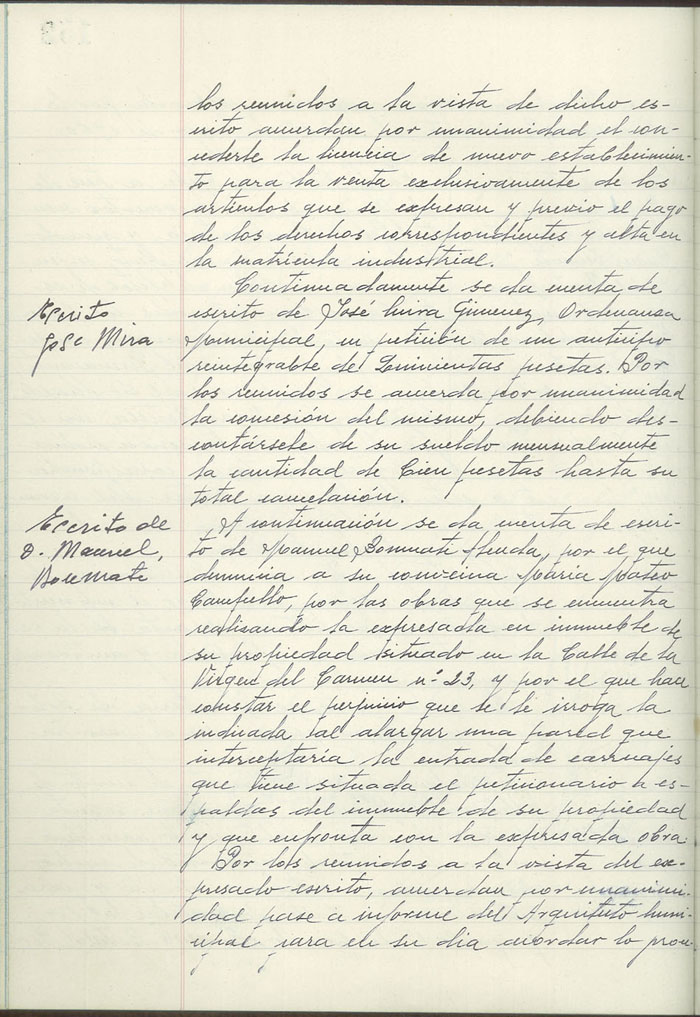 los reunidos a la vista de dicho es-
crito acuerdan por unanimidad el con-
cederle la licencia de nuevo establecimien-
to para la venta exclusivamente de los
artículos que se expresan y previo el pago
de los derechos correspondientes y alta en
la matrícula industrial.
Escrito
José Mira
Continuadamente se da cuenta de
escrito de José Mira Gimenez, Ordenanza
Municipal, en petición de un anticipo
reintegrable de Quinientas pesetas. Por
los reunidos se acuerda por unanimidad
la concesión del mismo, debiendo des-
contársele de su sueldo mensualmente
la cantidad de Cien pesetas hasta su
total cancelación.
Escrito de
D. Manuel,
Bonmatí
A continuación se da cuenta de escri-
to de Manuel Bonmatí, por el que
denuncia a su convecina María Mateo
Campello, por las obras que se encuentra
realizando la expresada en inmueble de
su propiedad situado en la Calle de la
Virgen del Carmen nº 23, y por el que hace
constar el perjuicio que se le irroga la
indicada al alargar una pared que
interceptaría la entrada de carruajes
que tiene situada el peticionario a es-
paldas del inmueble de su propiedad
y que enfronta con la expresada obra.
Por los reunidos a la vista del ex-
presado escrito, acuerdan por unanimi-
dad pase a informe del Arquitecto Muni-
cipal para en su dia acordar lo proce-